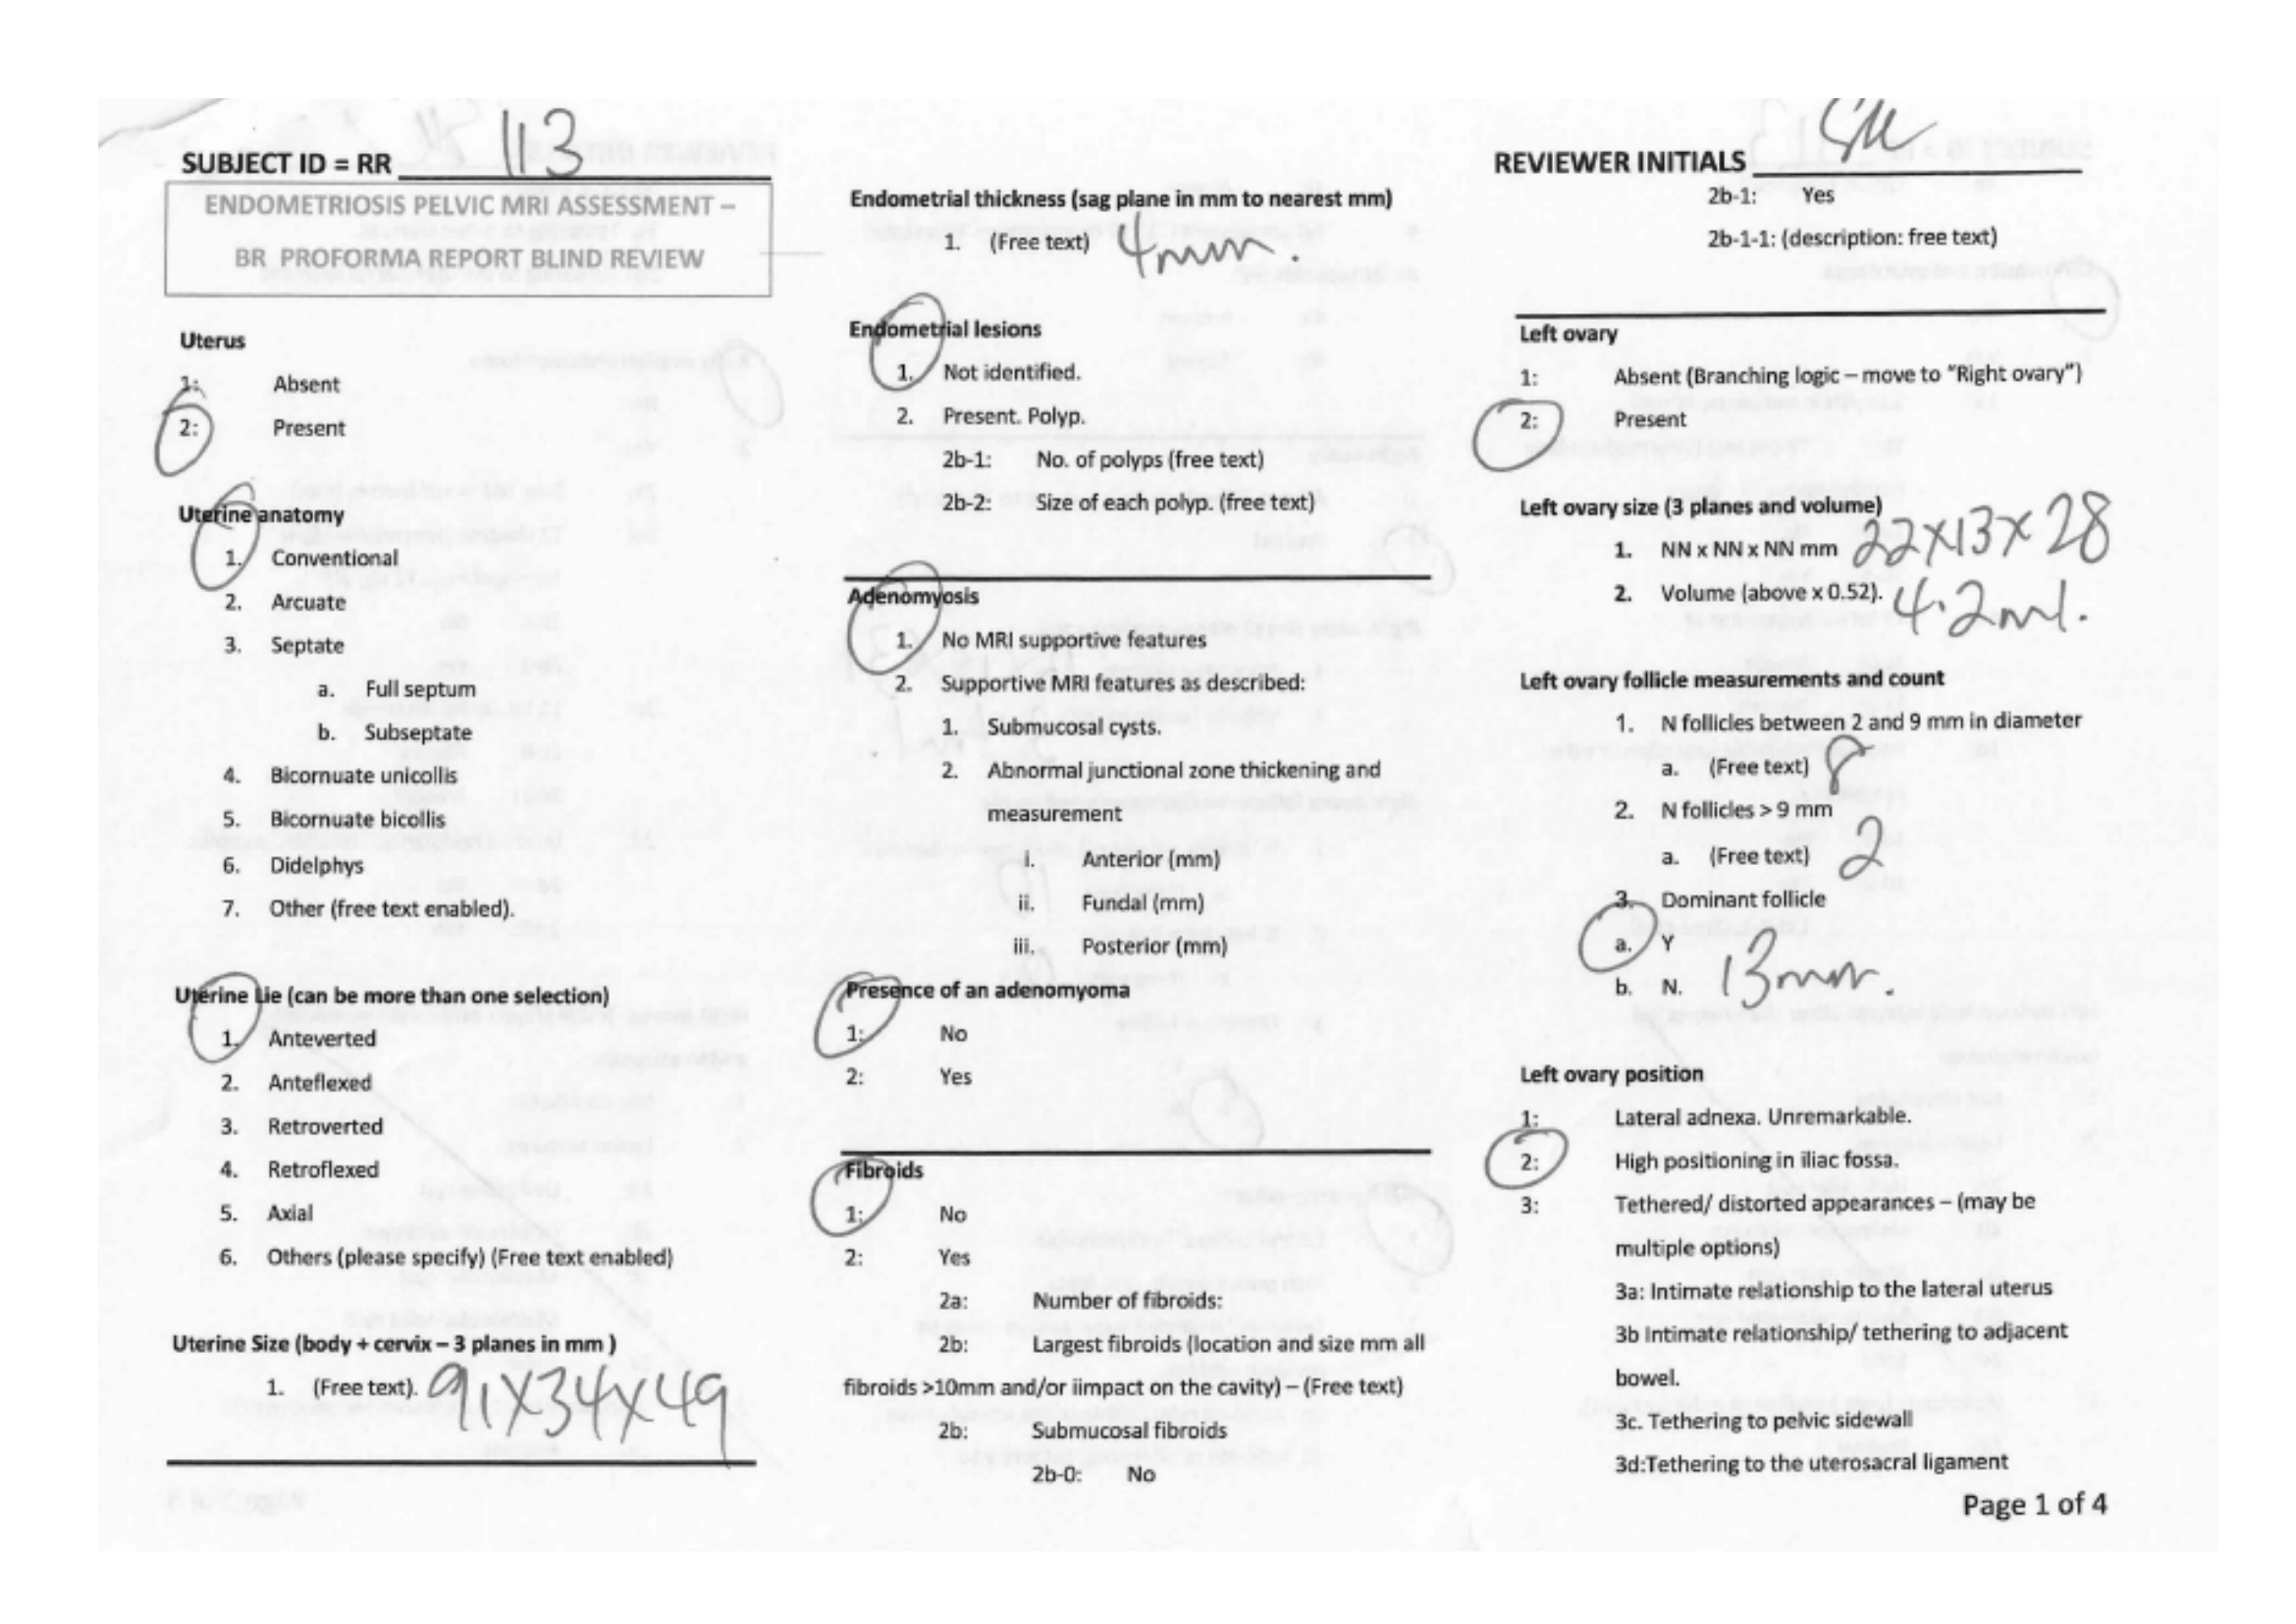 SUBJECT ID = RR 113
ENDOMETRIOSIS PELVIC MRI ASSESSMENT –
BR PROFORMA REPORT BLIND REVIEW
Uterus
1: Absent
2: Present
Uterine anatomy
1. Conventional
2. Arcuate
3. Septate
a. Full septum
b. Subseptate
4. Bicornuate unicollis
5. Bicornuate bicollis
6. Didelphys
7. Other (free text enabled).
Uterine Lie (can be more than one selection)
1. Anteverted
2. Anteflexed
3. Retroverted
4. Retroflexed
5. Axial
6. Others (please specify) (Free text enabled)
Uterine Size (body + cervix – 3 planes in mm )
1. (Free text). 91X34X49
Endometrial thickness (sag plane in mm to nearest mm)
1. (Free text) 4mm.
Endometrial lesions
1. Not identified.
2. Present. Polyp.
2b-1: No. of polyps (free text)
2b-2: Size of each polyp. (free text)
Adenomyosis
1. No MRI supportive features
2. Supportive MRI features as described:
1. Submucosal cysts.
2. Abnormal junctional zone thickening and
measurement
i. Anterior (mm)
ii. Fundal (mm)
iii. Posterior (mm)
Presence of an adenomyoma
1: No
2: Yes
Fibroids
1: No
2: Yes
2a: Number of fibroids:
2b: Largest fibroids (location and size mm all
fibroids >10mm and/or iimpact on the cavity) – (Free text)
2b: Submucosal fibroids
2b-0: No
REVIEWER INITIALS
2b-1: Yes
2b-1-1: (description: free text)
Left ovary
1: Absent (Branching logic – move to “Right ovary”)
2: Present
Left ovary size (3 planes and volume)
1. NN x NN x NN mm 22X13X28
2. Volume (above x 0.52). 4.2ml.
Left ovary follicle measurements and count
1. N follicles between 2 and 9 mm in diameter
a. (Free text) 8
2. N follicles > 9 mm
a. (Free text) 2
3. Dominant follicle
a. Y
b. N. 13mm.
Left ovary position
1: Lateral adnexa. Unremarkable.
2: High positioning in iliac fossa.
3: Tethered/ distorted appearances – (may be
multiple options)
3a: Intimate relationship to the lateral uterus
3b Intimate relationship/ tethering to adjacent
bowel.
3c. Tethering to pelvic sidewall
3d:Tethering to the uterosacral ligament
Page 1 of 4